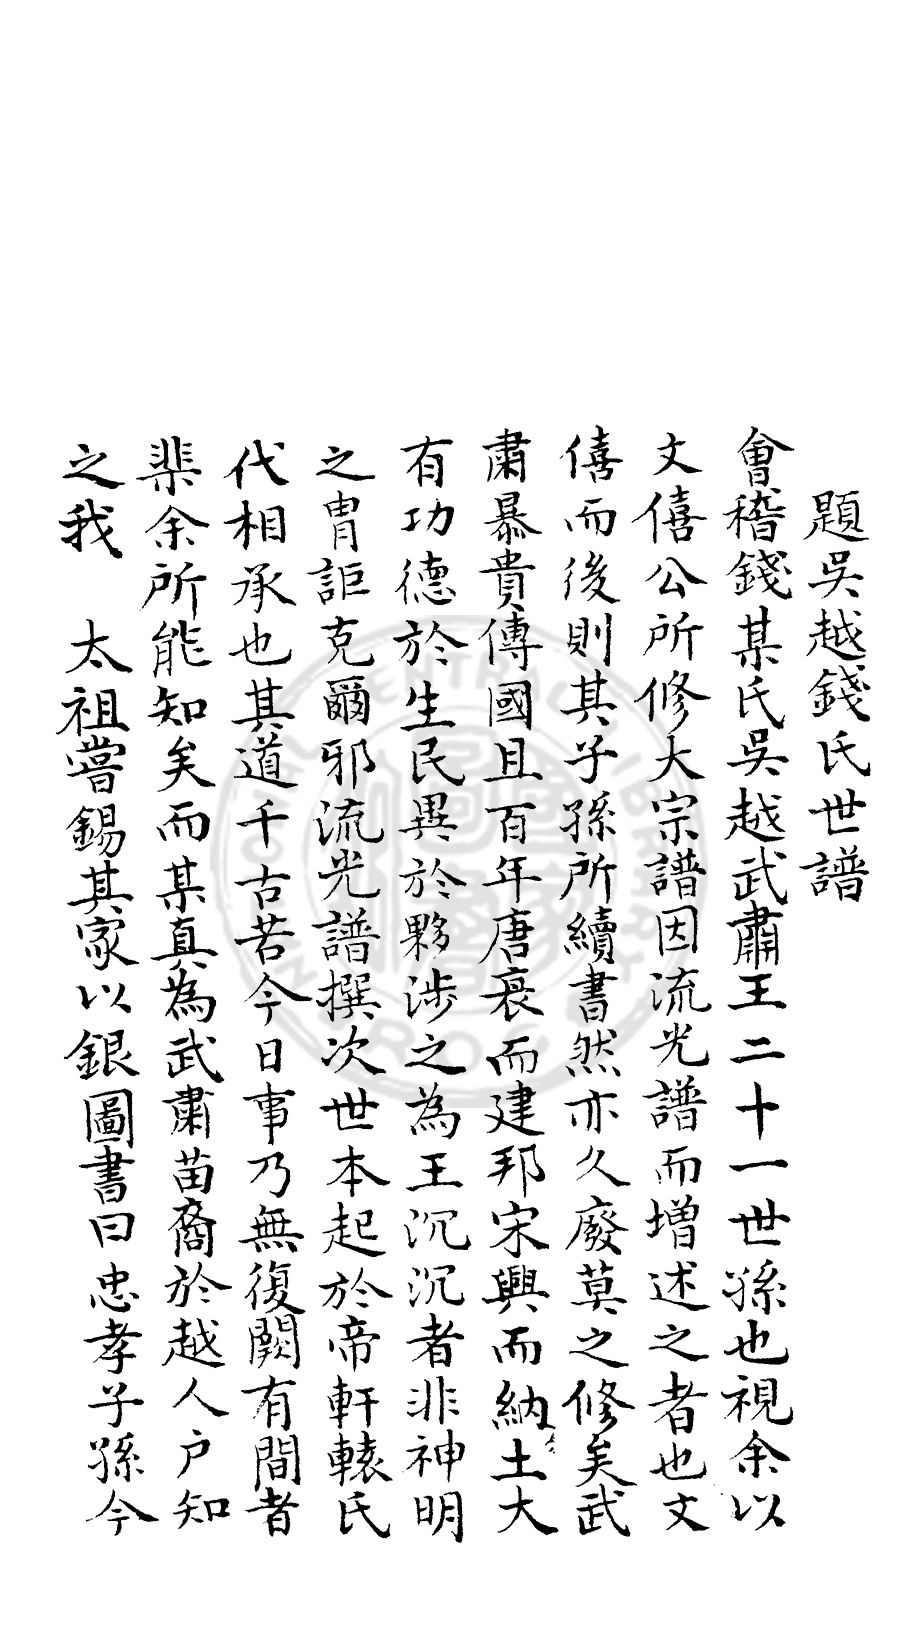 題吳越錢氏世譜
會稽錢某氏吳越武肅王二十一世孫也視余以
文僖公所修大宗譜因流光譜而增述之者也文
僖而後則其子孫所續書然亦久廢莫之修矣武
肅暴貴傳國且百年唐衰而建邦宋興而納土大
有功德於生民異於夥涉之為王沉沉者非神明
之冑詎克爾邪流光譜撰次世本起於帝軒轅氏
代相承也其道千古若今日事乃無復闕有間者
棐余所能知矣而某真為武肅苗裔於越人户知
之我　太祖嘗錫其家以銀圖書曰忠孝子孫今